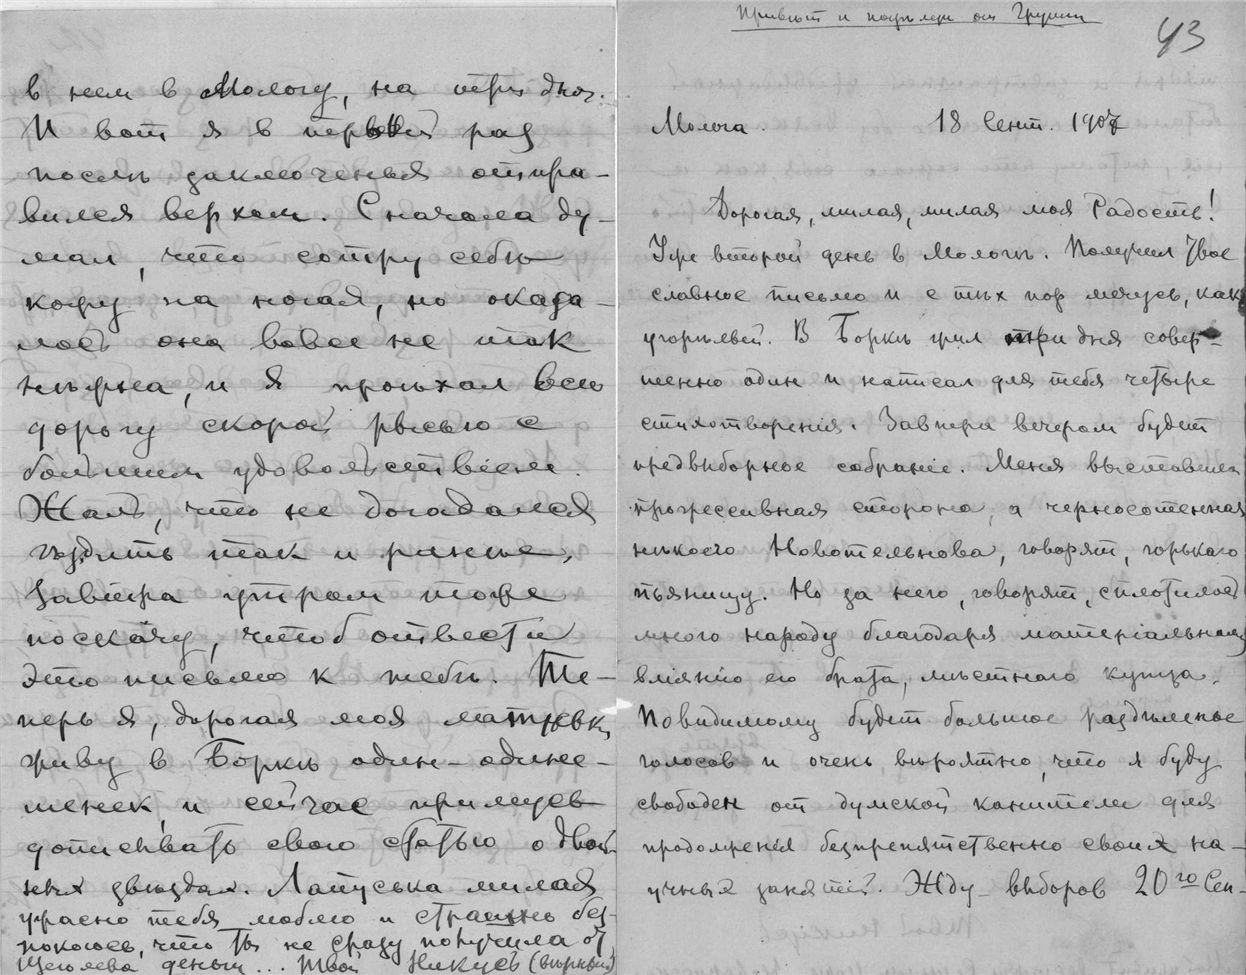 в нем в Мологу, на три дня.
И вот я в первый раз
послѣ заключенья отпра-
вился верхом. Сначала ду-
мал, что сотру себѣ
кожу на ногах, но оказа-
лось она вовсе не так
нѣжна, и я проѣхал всю
дорогу скорой рысью с
большим удовольствіем.
Жаль, что не догадался
ѣздить так и раньше,
Завтра утром тоже
поскачу, чтоб отвести
это письмо к тебѣ. Те-
перь я, дорогая моя
живу в Боркѣ один-одине-
шенек, и сейчас примусь
дописывать свою статью о двой-
ных звѣздах. Лапуська милая
ужасно тебя люблю и страшно без-
покоюсь, что ты не сразу получила от
Щеголева деньги... Твой Никусь (вѣрный)
Привѣт и поцѣлуи от Груши
43
Молога. 18 Сент. 1907
Дорогая, милая, милая моя Радость!
Уже второй день в Мологѣ. Получил Твое
славное письмо и с тѣх пор мечусь, как
угорѣлый. В Боркѣ жил три дня совер-
шенно один и написал для тебя четыре
стихотворенія. Завтра вечером будет
предвыборное собраніе. Меня выставила
прогрессивная сторона, а черносотенная
нѣкоего Новотельнова, говорят, горькаго
пьяницу. Но за него, говорят, сплотилось
много народу благодаря матеріальному
вліянію его брата, мѣстнаго купца.
Повидимому будет большое раздѣленье
голосов и очень вѣроятно, что я буду
свободен от думской канители для
продолженія безпрепятственно своих на-
учных занятій. Жду выборов 20го Сен-